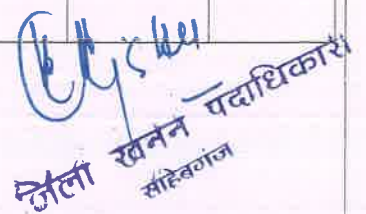 जिला खनन पदाधिकारी
साहेबगंज